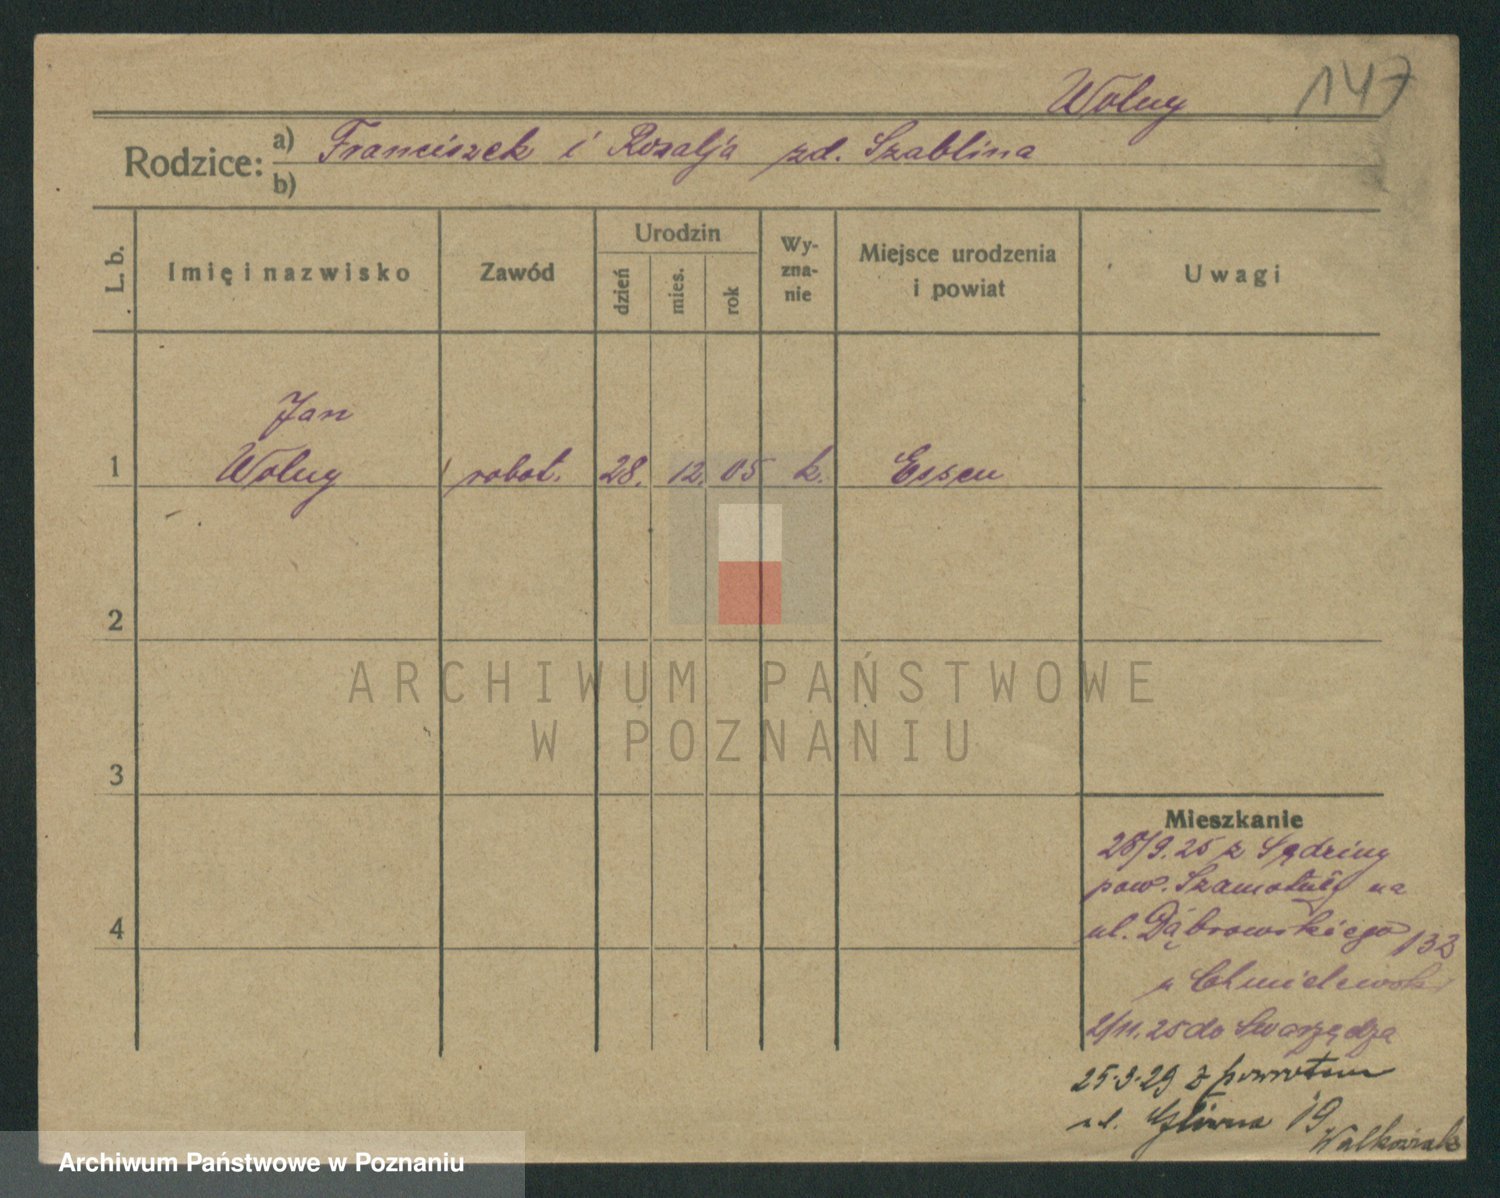 147
Wolny
Rodzice: a) Franciszek i Rozalja zd. Szablina
b)
L. b.
Imię i nazwisko
Zawód
Urodzin
dzień
mies.
rok
Wy-
zna-
nie
Miejsce urodzenia
i powiat
Uwagi
Jan
1 Wolny robot. 28. 12. 05 k. Essen
2
3
4
ARCHIWUM PAŃSTWOWE
W POZNANIU
Mieszkanie
28/9. 25 z Sędziny
pow. Szamotuły na
ul. Dąbrowskiego 133
u Chmielewski
2/11. 25 do Swarzędza
25.3.29 z powrotem
ul. Główna 19
Walkowiak
Archiwum Państwowe w Poznaniu